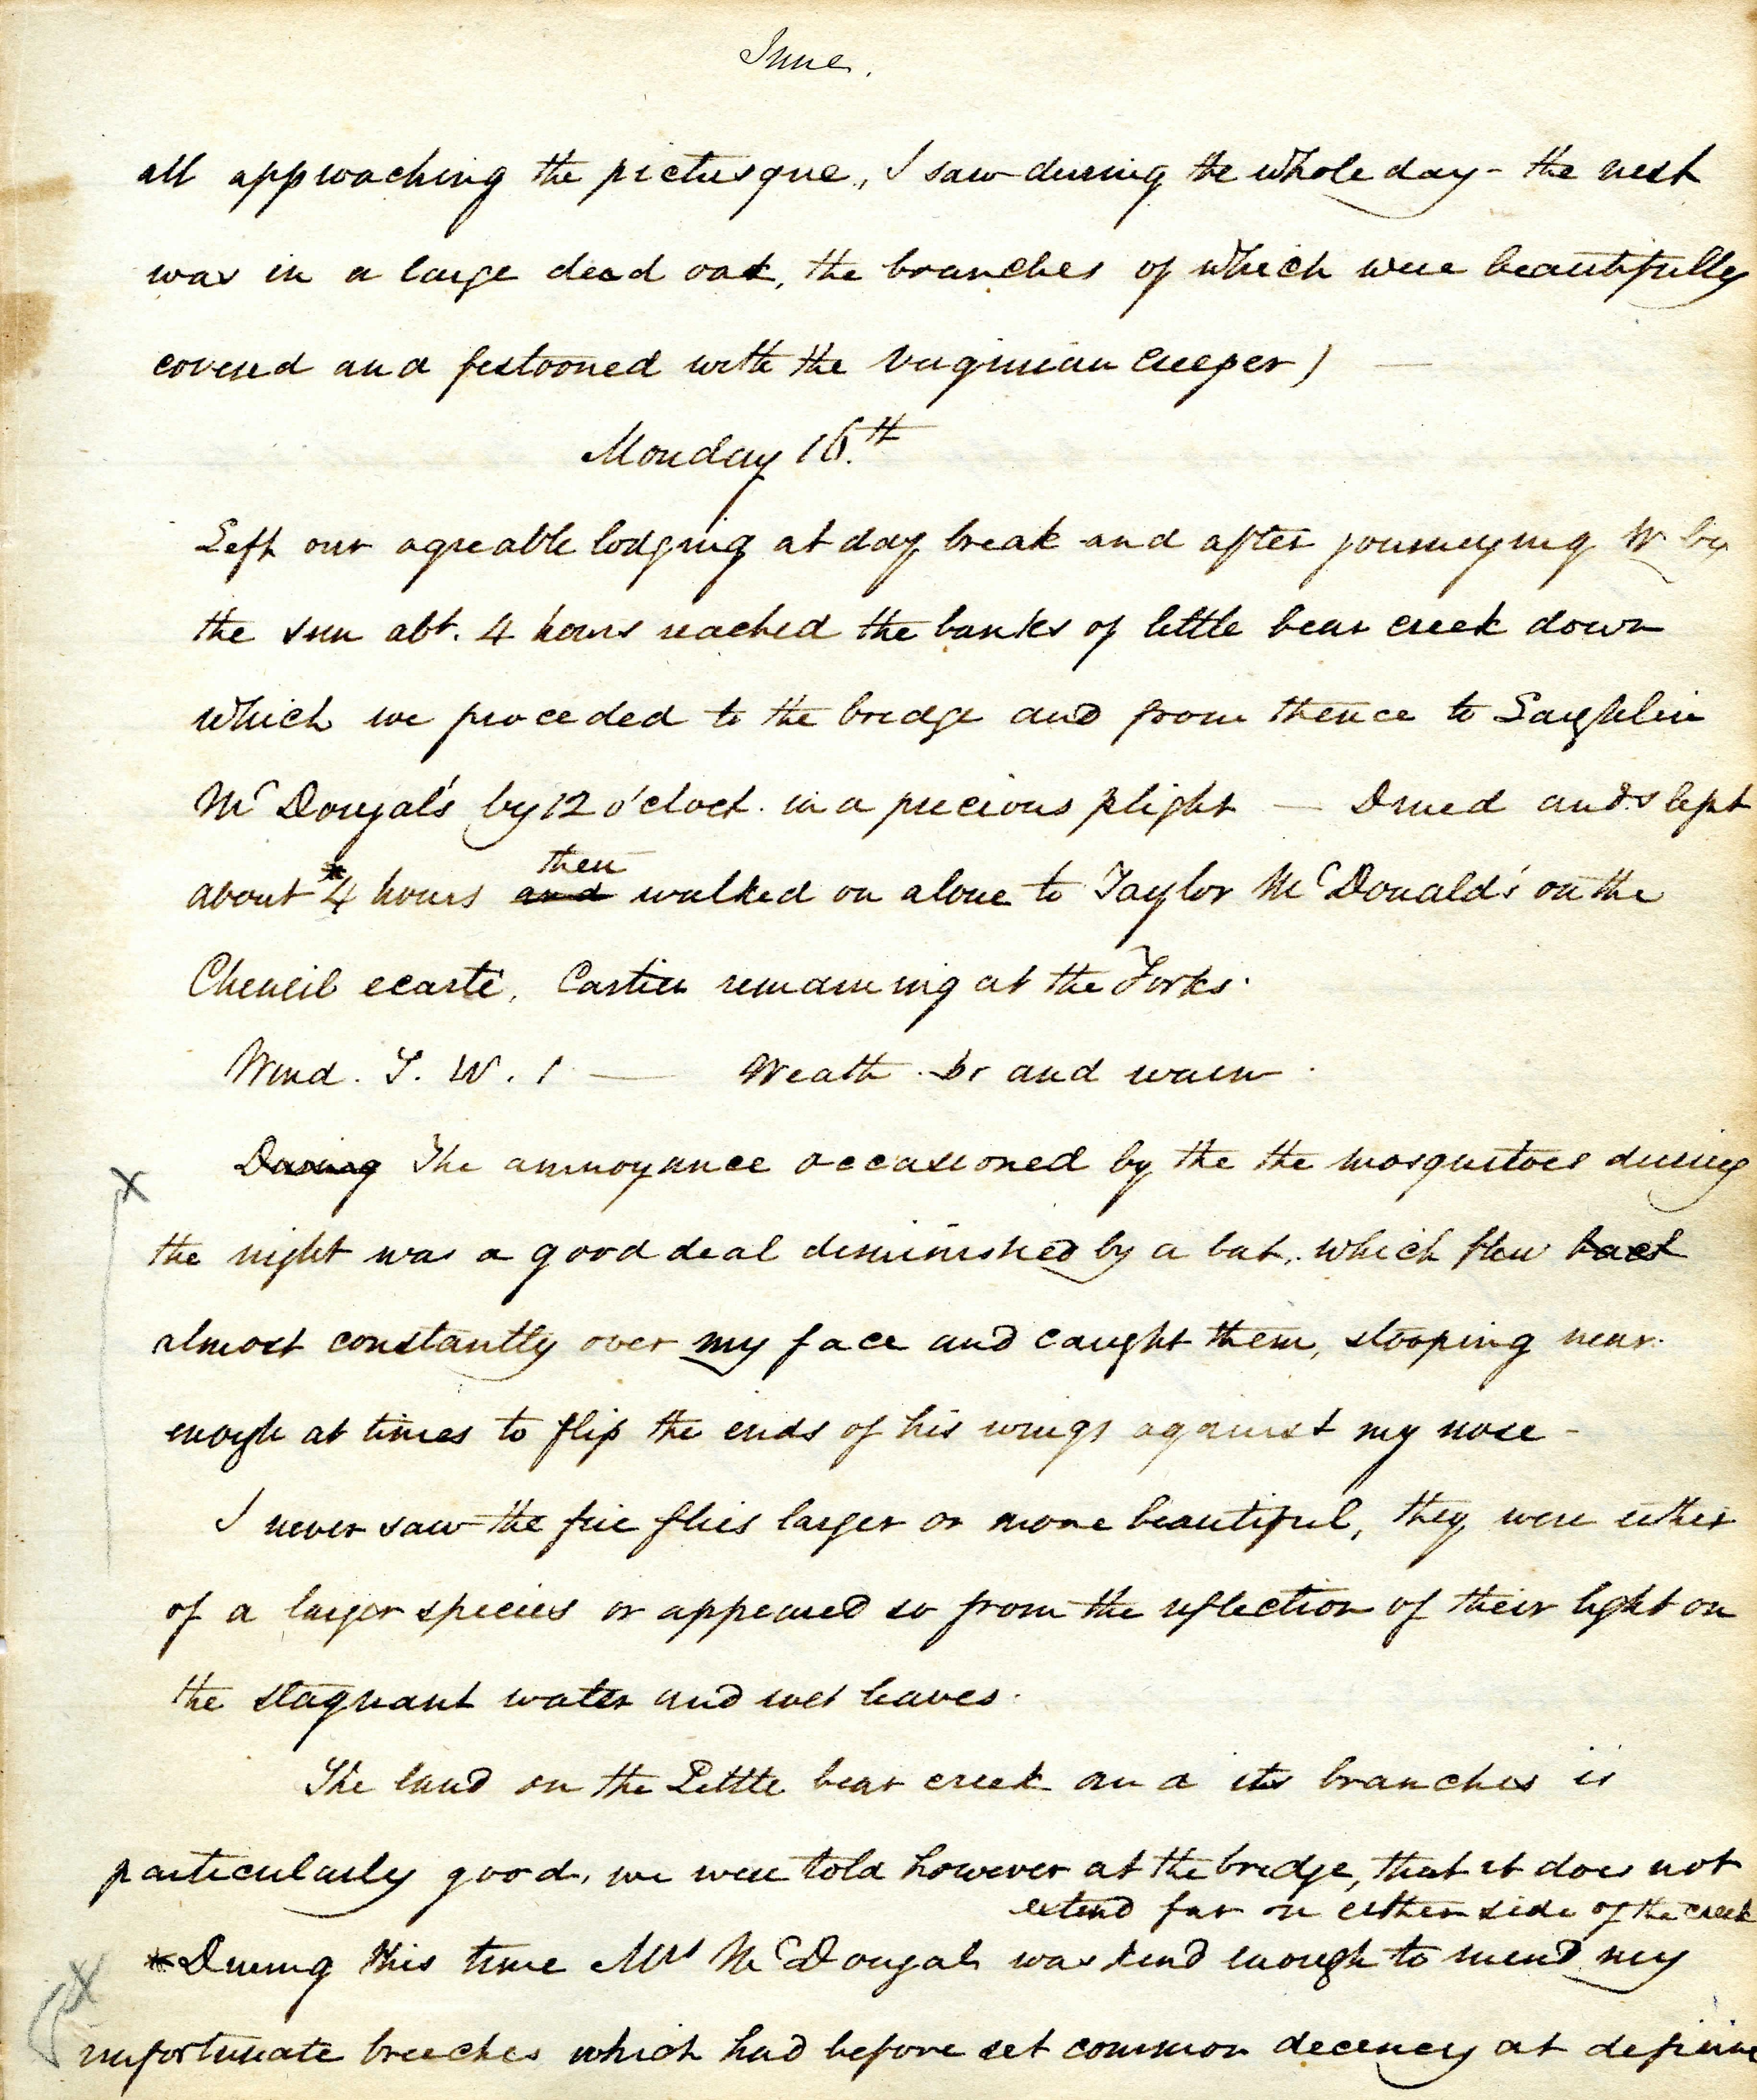 June.
all approaching the picturesque, I saw during the whole day - the nest
was in a large dead oak, the branches of which were beautifully
covered and festooned with the Virginian creeper) —
Monday 16.th
Left our agreable lodging at day break and after journeying W by
the sun abt. 4 hours reached the banks of little bear creek down
which we proceded to the bridge and from thence to Laughlin
McDougal's by 12 o'clock. in a precious plight — Dined and slept
about *4 hours and then walked on alone to Taylor McDonald's on the
Cheneil ecarté, Cartier remaining at the Forks.
Wind. S. W. 1 — Weath. br and warm.
During The annoyance occasioned by the the mosquitoes during
the night was a good deal diminished by a bat, which flew back
almost constantly over my face and caught them, stooping near
enough at times to flip the ends of his wings against my nose -
I never saw the fire flies larger or more beautiful, they were either
of a larger species or appeared so from the reflection of their light on
the stagnant water and wet leaves.
The land on the Little bear creek and its branches is
particularly good, we were told however at the bridge, that it does not
extend far on either side of the creek
*During this time Mrs McDougal was kind enough to mend my
unfortunate breeches which had before set common decency at defiance